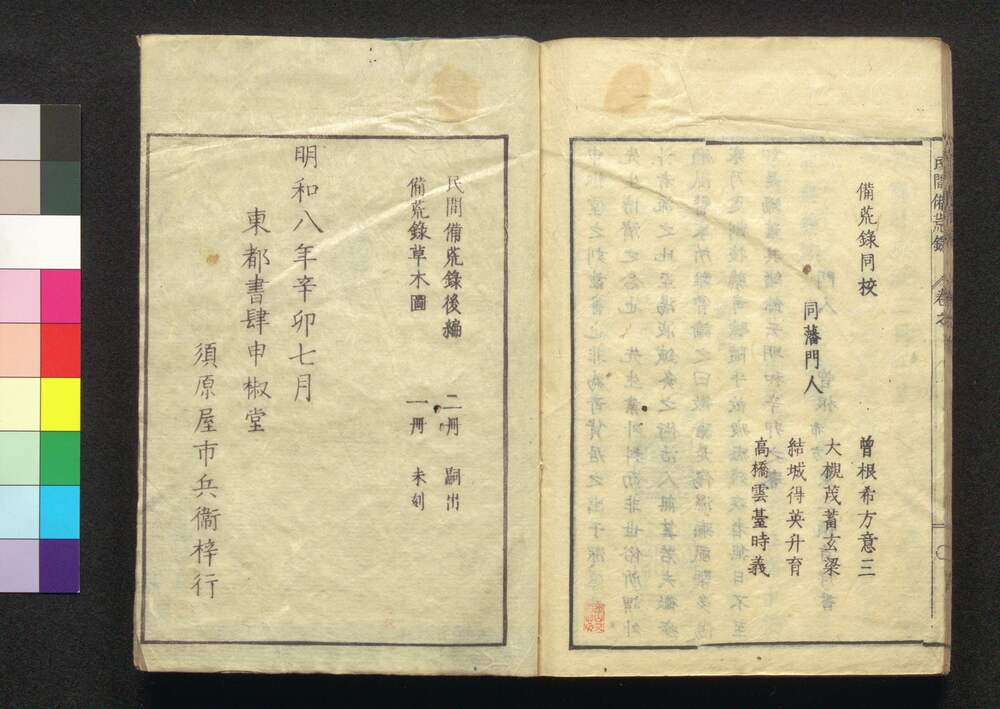 民間備荒錄
備荒錄同校
同藩門人
曾根希方意三
大槻茂蓄玄梁
結城得英升育
高橋雲臺時義
民間備荒錄後編 二冊 嗣出
備荒錄草木圖 一冊 未刻
明和八年辛卯七月
東都書肆申椒堂
須原屋市兵衞梓行